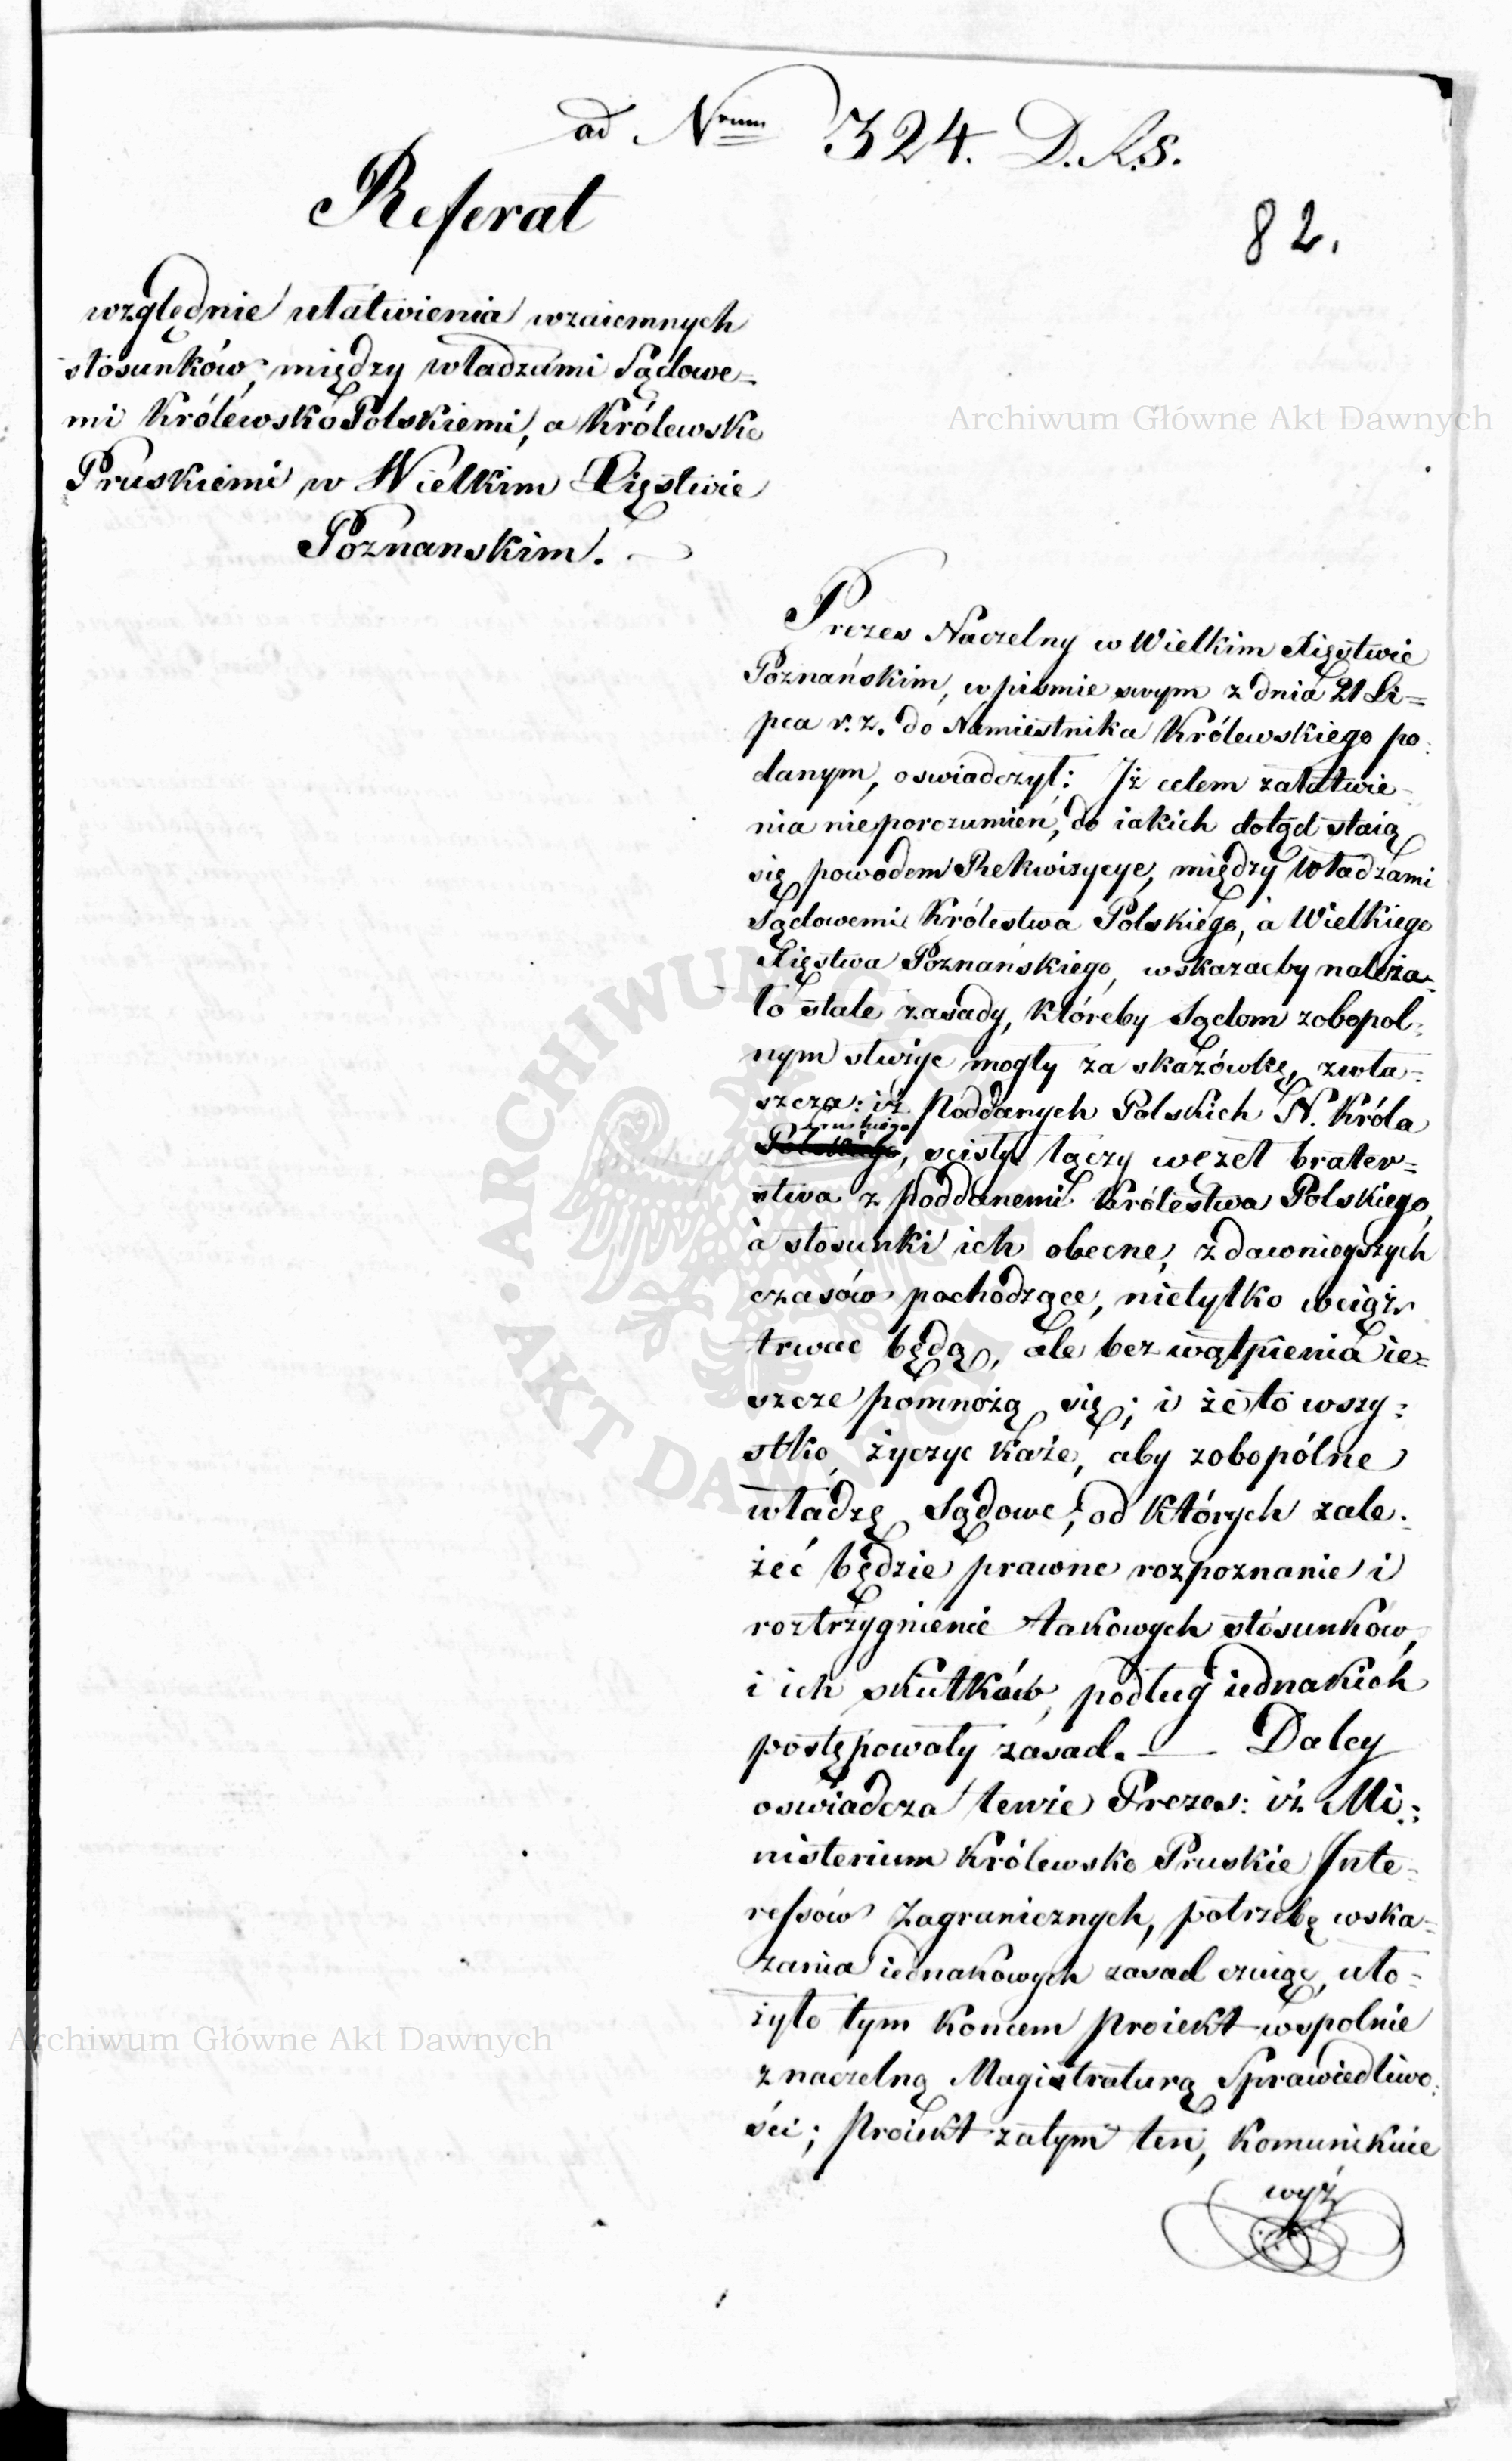 ad Nrum 324. D.K.S.
82.
Referat
względnie ułatwienia wzaiemnych
stosunków, między władzami Sądowe=
mi Królewsko Polskiemi, a Królewsko
Pruskiemi w Wielkim Xięstwie
Poznanskim.
Prezes Naczelny w Wielkim Xięstwie
Poznańskim, w pismie swym z dnia 21 Li=
pca r. z. do Namiestnika Królewskiego po=
danym, oswiadczył: Iż celem załatwie=
nia nieporozumień, do iakich dotąd staią
się powodem Rekwizycye, między Władzami
Sądowemi Królestwa Polskiego, a Wielkiego
Xięstwa Poznańskiego, wskazaćby należa=
ło stałe zasady, któreby Sądom zobopol=
nym służyć mogły za skazówkę, zwła=
szcza: iż Poddanych Polskich N. Króla
Pruskiego
Polskiego, scisły łączy węzeł brater=
stwa z poddanemi Królestwa Polskiego,
a stosunki ich obecne, z dawnieyszych
czasów pochodzące, nietylko wciąż
trwać będą, ale bez wątpienia ie=
szcze pomnożą się; i że to wszy=
stko, życzyć każe, aby zobopólne
władzę Sądowe, od których zale=
żeć będzie prawne rozpoznanie i
roztrzygnienie takowych stósunków,
i ich skutków, podług iednakich
postępowały zasad. — Daley
oswiadcza tenże Prezes: iż Mi=
nisterium Królewsko Pruskie Inte=
ressów Zagranicznych, potrzebę wska=
zania iednakowych zasad czuiąc, uło=
żyło tym koncem proiekt wspolnie
z naczelną Magistraturą Sprawiedliwo=
ści; Proiekt zatym ten, kommunikuie
wyż
Archiwum Główne Akt Dawnych
ARCHIWUM GŁÓWNE AKT DAWNYCH
Archiwum Główne Akt Dawnych